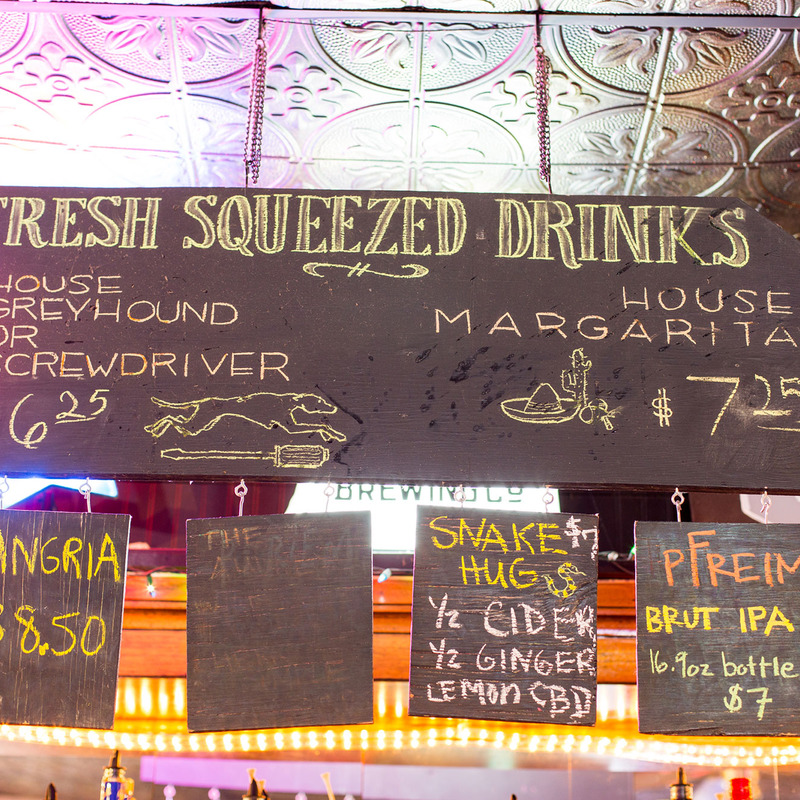 FRESH SQUEEZED DRINKS
HOUSE
GREYHOUND
OR
SCREWDRIVER
6 25
HOUSE
MARGARITA
$ 7 25
BREWING Co
ANGRIA
$8.50
THE
SNAKE $7
HUG
1/2 CIDER
1/2 GINGER
LEMON CBD
PFREIM
BRUT IPA
16.9oz bottle
$7